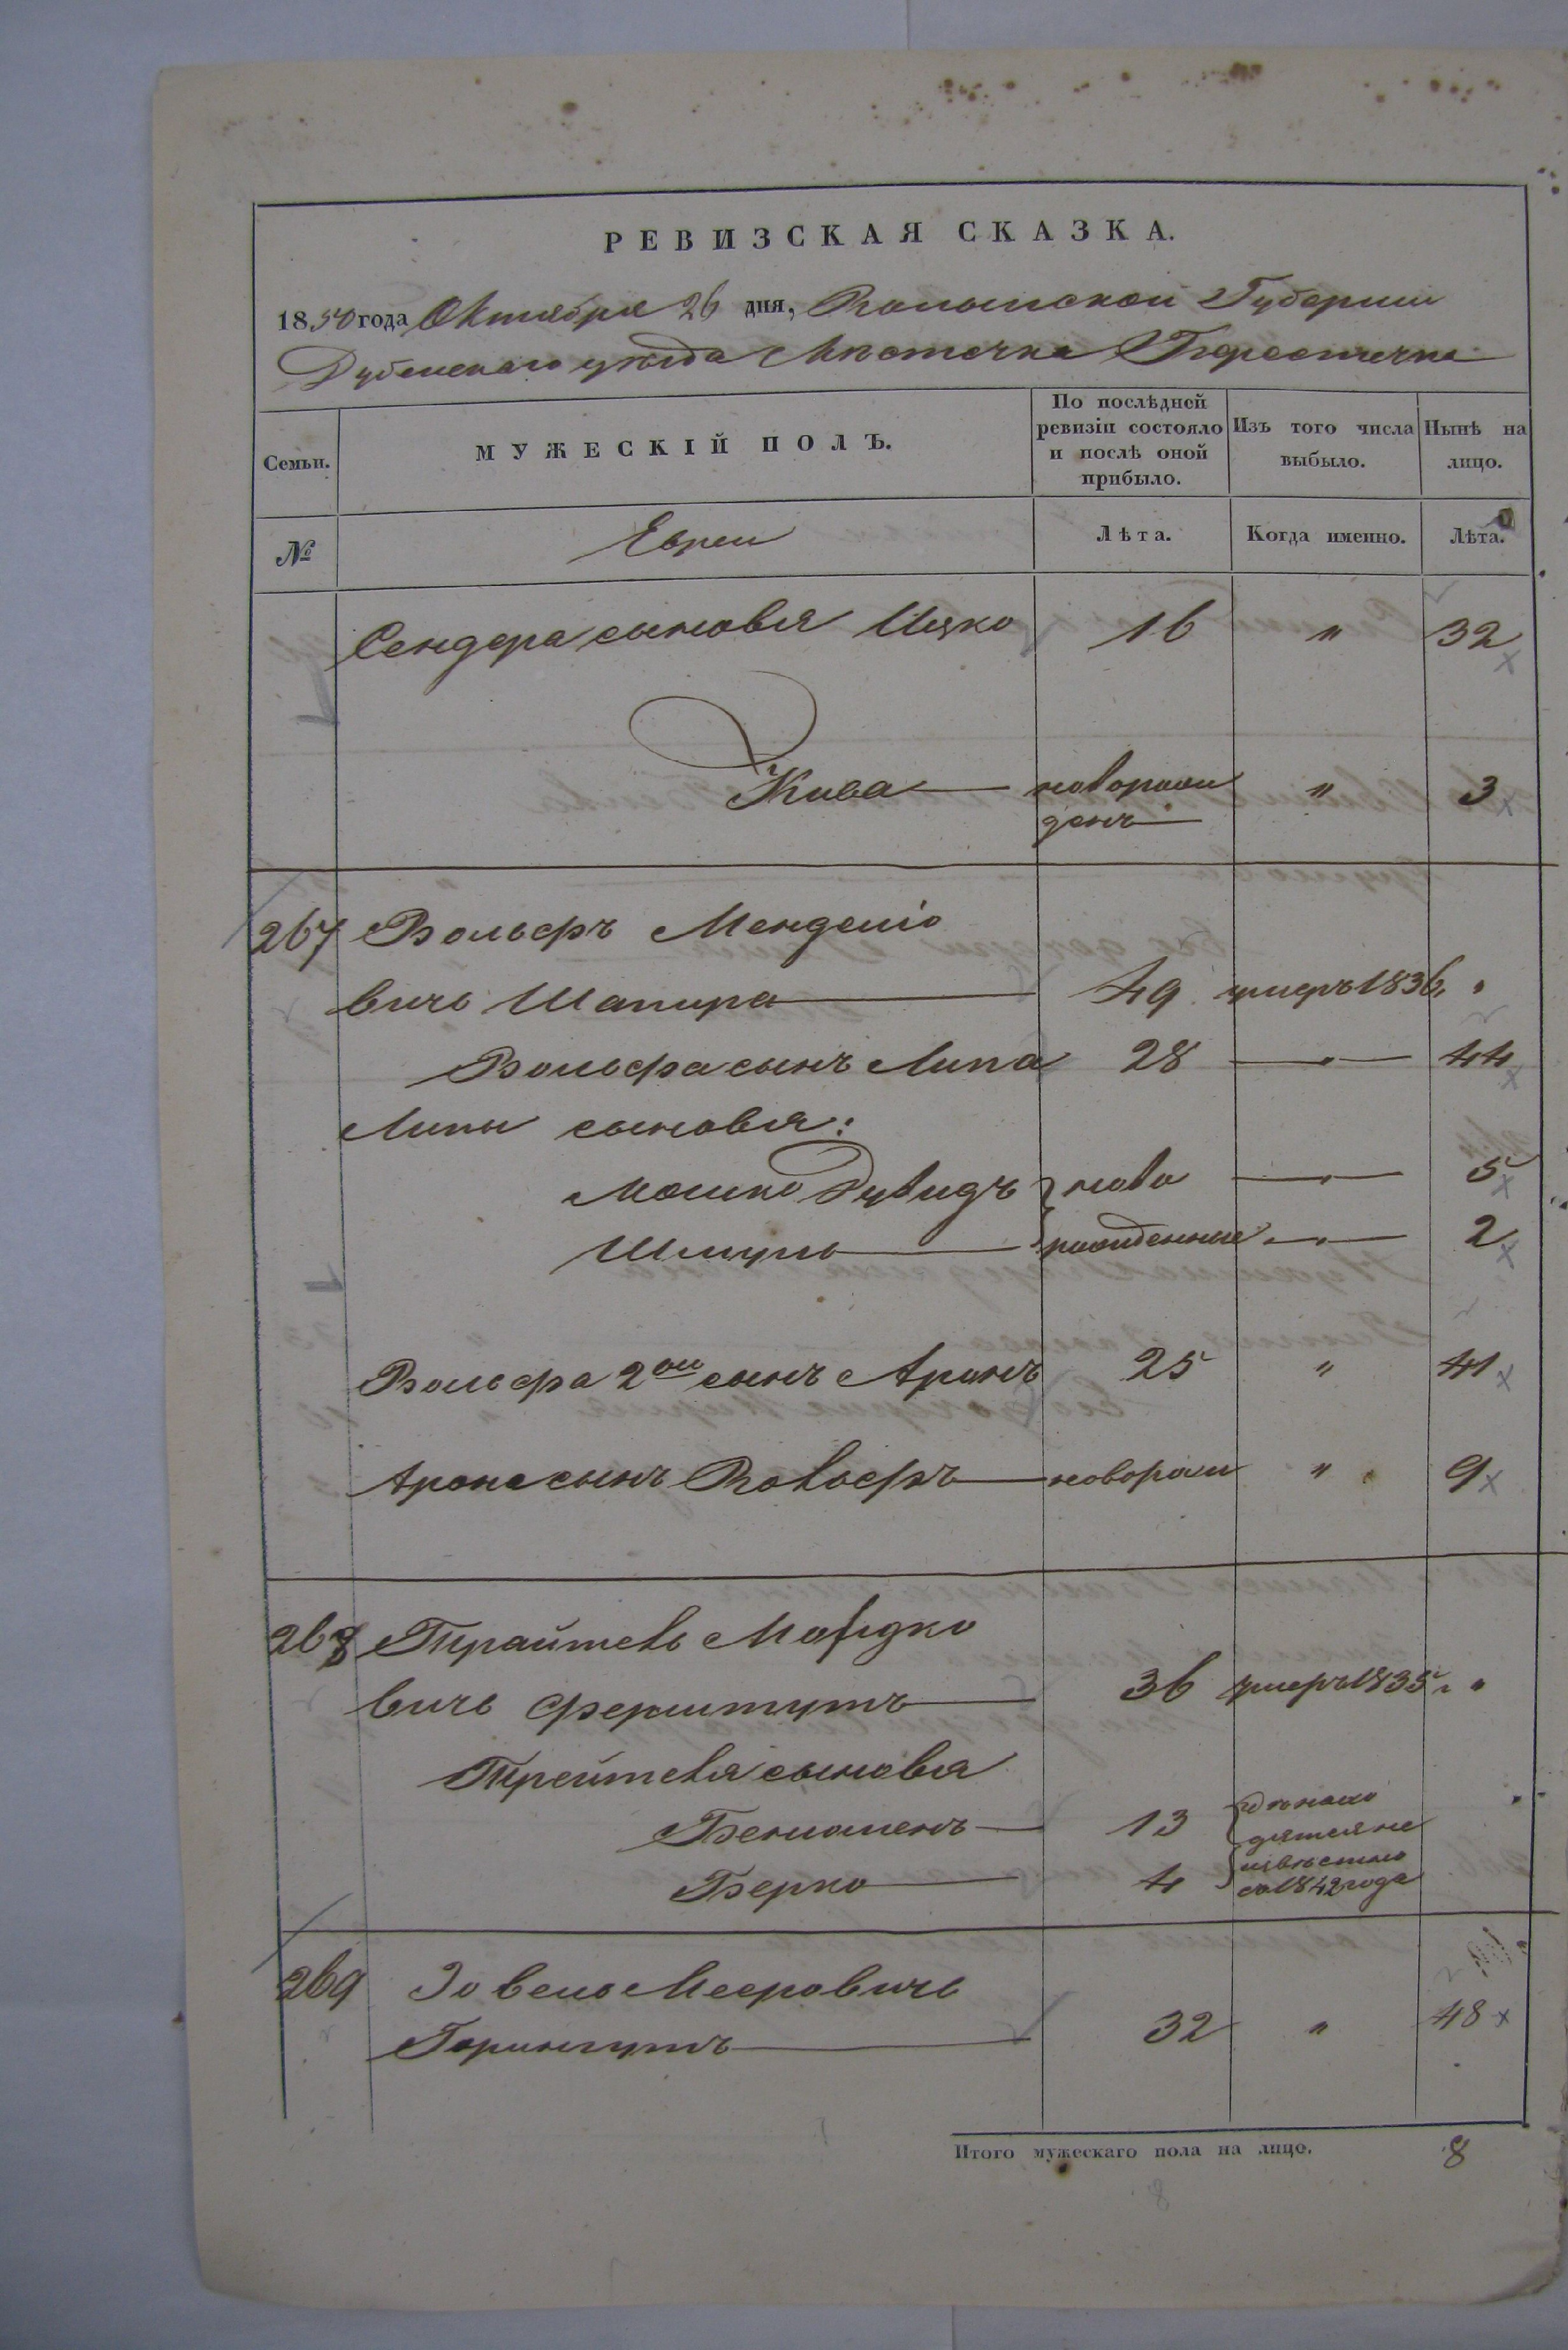 РЕВИЗСКАЯ СКАЗКА.
1850 года Октября 26 дня, Волынской Губернии
Дубенскаго уѣзда Мѣстечка Берестечка
Семьи.
МУЖЕСКІЙ ПОЛЪ.
По послѣдней ревизіи состояло и послѣ оной прибыло.
Изъ того числа выбыло.
Нынѣ на лицо.
№
Евреи
Лѣта.
Когда именно.
Лѣта.
Сендера сыновья Ицко 16 " 32
Кива новорож " 3
денъ
267 Вольфъ Менделіо
вичь Шапира 49 умеръ 1836 "
Вольфа сынъ Липа 28 " 44
Липы сыновья:
Мошко Дувидъ ново " 5
Шмуль рожденные " 2
Вольфа 2ой сынъ Аронъ 25 " 41
Арона сынъ Вольфъ новорож " 9
268 Трайтель Мордко
вичь Ферштутъ 36 умеръ 1835 г. "
Трейтеля сыновья
Бениоменъ 13 гдѣ нахо
дятся не
Берко 4 извѣстно
съ 1842 года
269 Іовель Мееровичь
Горингутъ 32 " 48
Итого мужескаго пола на лицо. 8